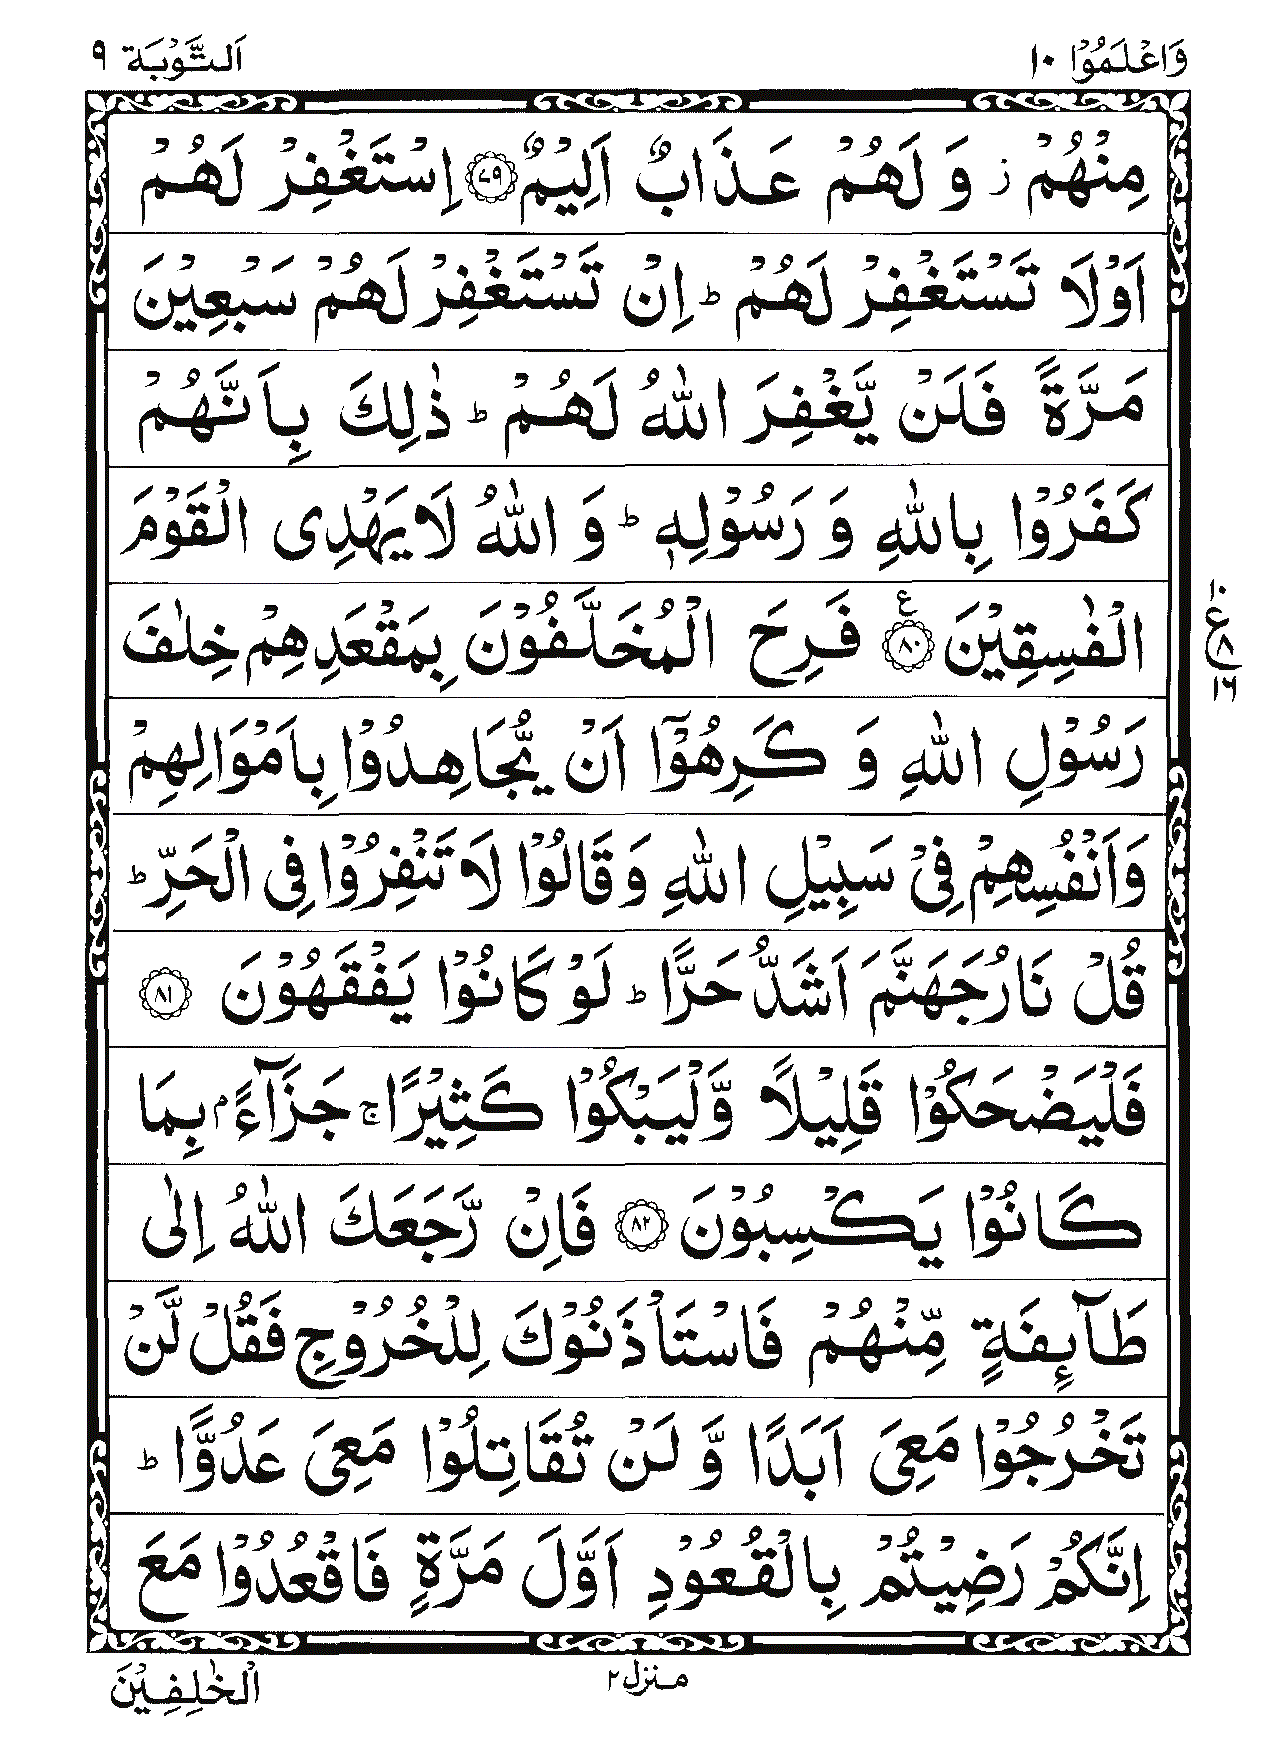 وَاعْلَمُوْۤا ١٠
اَلتَّوْبَة ٩
مِنْهُمْ ز وَ لَهُمْ عَذَابٌ اَلِیْمٌ ﴿٧٩﴾ اِسْتَغْفِرْ لَهُمْ
اَوْلَا تَسْتَغْفِرْ لَهُمْ ط اِنْ تَسْتَغْفِرْ لَهُمْ سَبْعِیْنَ
مَرَّةً فَلَنْ یَّغْفِرَ اللّٰهُ لَهُمْ ط ذٰلِكَ بِاَنَّهُمْ
كَفَرُوْا بِاللّٰهِ وَ رَسُوْلِهٖ ط وَ اللّٰهُ لَا یَهْدِی الْقَوْمَ
الْفٰسِقِیْنَ ﴿٨٠﴾ ع فَرِحَ الْمُخَلَّفُوْنَ بِمَقْعَدِهِمْ خِلٰفَ
١٠
ع
٨
١٦
رَسُوْلِ اللّٰهِ وَ كَرِهُوْۤا اَنْ یُّجَاهِدُوْا بِاَمْوَالِهِمْ
وَاَنْفُسِهِمْ فِیْ سَبِیْلِ اللّٰهِ وَقَالُوْا لَا تَنْفِرُوْا فِی الْحَرِّ ط
قُلْ نَارُ جَهَنَّمَ اَشَدُّ حَرًّا ط لَوْ كَانُوْا یَفْقَهُوْنَ ﴿٨١﴾
فَلْیَضْحَكُوْا قَلِیْلًا وَّلْیَبْكُوْا كَثِیْرًا ج جَزَآءًۢ بِمَا
كَانُوْا یَكْسِبُوْنَ ﴿٨٢﴾ فَاِنْ رَّجَعَكَ اللّٰهُ اِلٰی
طَآىِٕفَةٍ مِّنْهُمْ فَاسْتَاْذَنُوْكَ لِلْخُرُوْجِ فَقُلْ لَّنْ
تَخْرُجُوْا مَعِیَ اَبَدًا وَّ لَنْ تُقَاتِلُوْا مَعِیَ عَدُوًّا ط
اِنَّكُمْ رَضِیْتُمْ بِالْقُعُوْدِ اَوَّلَ مَرَّةٍ فَاقْعُدُوْا مَعَ
منزل ٢
الْخٰلِفِیْنَ